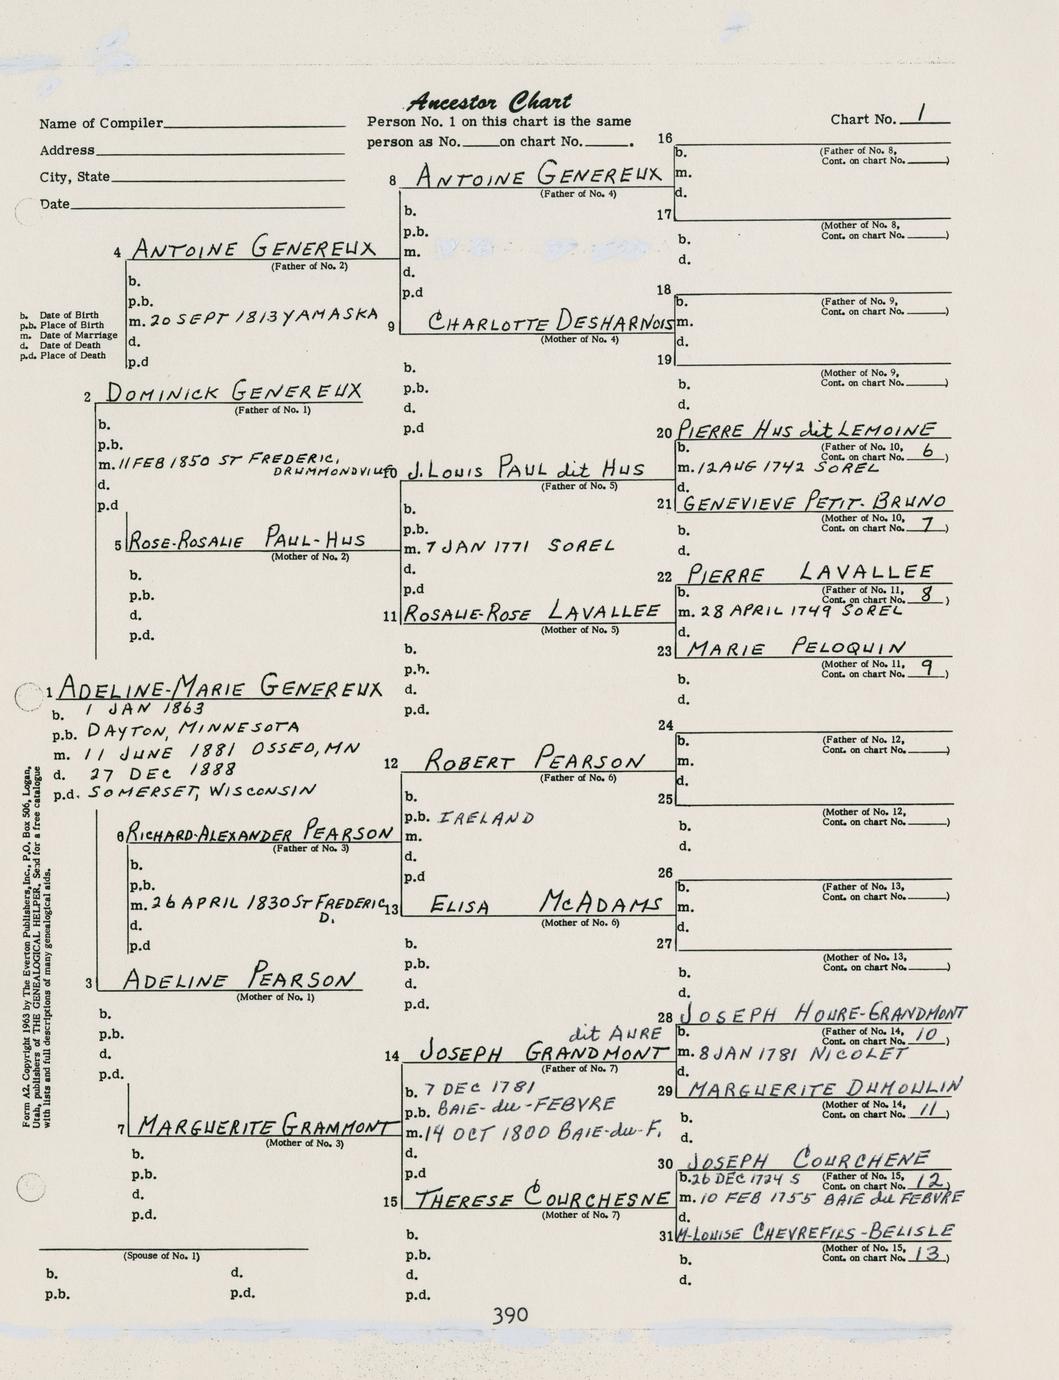 Ancestor Chart
Name of Compiler
Person No. 1 on this chart is the same
Chart No. 1
Address
person as No. on chart No. .
City, State
Date
16
b. (Father of No. 8,
Cont. on chart No. )
m.
d.
8 ANTOINE GENEREUX
(Father of No. 4)
b.
p.b.
m.
d.
p.d
17
(Mother of No. 8,
Cont. on chart No. )
b.
d.
4 ANTOINE GENEREUX
(Father of No. 2)
b.
p.b.
m. 20 SEPT 1813 YAMASKA
d.
p.d
18
b. (Father of No. 9,
Cont. on chart No. )
m.
d.
9 CHARLOTTE DESHARNOIS
(Mother of No. 4)
b.
p.b.
d.
p.d
19
(Mother of No. 9,
Cont. on chart No. )
b.
d.
b. Date of Birth
p.b. Place of Birth
m. Date of Marriage
d. Date of Death
p.d. Place of Death
2 DOMINICK GENEREUX
(Father of No. 1)
b.
p.b.
m. 11 FEB 1850 ST FREDERIC,
DRUMMONDVILLE
d.
p.d
20 PIERRE HUS dit LEMOINE
b. (Father of No. 10,
Cont. on chart No. 6 )
m. 12 AUG 1742 SOREL
d.
10 J. LOUIS PAUL dit HUS
(Father of No. 5)
b.
p.b.
m. 7 JAN 1771 SOREL
d.
p.d
21 GENEVIEVE PETIT-BRUNO
(Mother of No. 10,
Cont. on chart No. 7 )
b.
d.
5 ROSE-ROSALIE PAUL-HUS
(Mother of No. 2)
b.
p.b.
d.
p.d.
22 PIERRE LAVALLEE
b. (Father of No. 11,
Cont. on chart No. 8 )
m. 28 APRIL 1749 SOREL
d.
11 ROSALIE-ROSE LAVALLEE
(Mother of No. 5)
b.
p.b.
d.
p.d.
23 MARIE PELOQUIN
(Mother of No. 11,
Cont. on chart No. 9 )
b.
d.
1 ADELINE-MARIE GENEREUX
b. 1 JAN 1863
p.b. DAYTON, MINNESOTA
m. 11 JUNE 1881 OSSEO, MN
d. 27 DEC 1888
p.d. SOMERSET, WISCONSIN
24
b. (Father of No. 12,
Cont. on chart No. )
m.
d.
12 ROBERT PEARSON
(Father of No. 6)
b.
p.b. IRELAND
m.
d.
p.d
25
(Mother of No. 12,
Cont. on chart No. )
b.
d.
6 RICHARD-ALEXANDER PEARSON
(Father of No. 3)
b.
p.b.
m. 26 APRIL 1830 ST FREDERIC,
D.
d.
p.d
26
b. (Father of No. 13,
Cont. on chart No. )
m.
d.
13 ELISA MCADAMS
(Mother of No. 6)
b.
p.b.
d.
p.d.
27
(Mother of No. 13,
Cont. on chart No. )
b.
d.
3 ADELINE PEARSON
(Mother of No. 1)
b.
p.b.
d.
p.d.
28 JOSEPH HOURE-GRANDMONT
b. (Father of No. 14,
Cont. on chart No. 10 )
m. 8 JAN 1781 NICOLET
d.
dit AURE
14 JOSEPH GRANDMONT
(Father of No. 7)
b. 7 DEC 1781
p.b. BAIE-du-FEBVRE
m. 14 OCT 1800 BAIE-du-F.
d.
p.d
29 MARGUERITE DUMOULIN
(Mother of No. 14,
Cont. on chart No. 11 )
b.
d.
7 MARGUERITE GRAMMONT
(Mother of No. 3)
b.
p.b.
d.
p.d.
30 JOSEPH COURCHENE
b. 26 DEC 1724 S (Father of No. 15,
Cont. on chart No. 12 )
m. 10 FEB 1755 BAIE du FEBVRE
d.
15 THERESE COURCHESNE
(Mother of No. 7)
b.
p.b.
d.
p.d.
31 M-LOUISE CHEVREFILS-BELISLE
(Mother of No. 15,
Cont. on chart No. 13 )
b.
d.
(Spouse of No. 1)
b. d.
p.b. p.d.
Form A2. Copyright 1963 by The Everton Publishers, Inc., P.O. Box 506, Logan,
Utah, publishers of THE GENEALOGICAL HELPER, Send for a free catalogue
with lists and full descriptions of many genealogical aids.
390